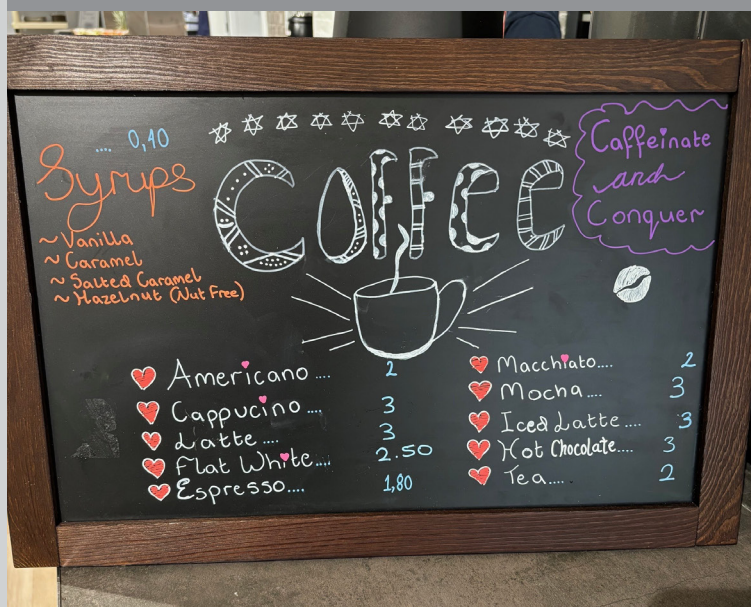 .... 0,40
Syrups
~ Vanilla
~ Caramel
~ Salted Caramel
~ Hazelnut (Nut Free)
Coffee
Caffeinate
and
Conquer
Americano .... 2
Cappucino .... 3
Latte .... 3
Flat White.... 2.50
Espresso.... 1,80
Macchiato.... 2
Mocha.... 3
Iced Latte .... 3
Hot Chocolate.... 3
Tea.... 2